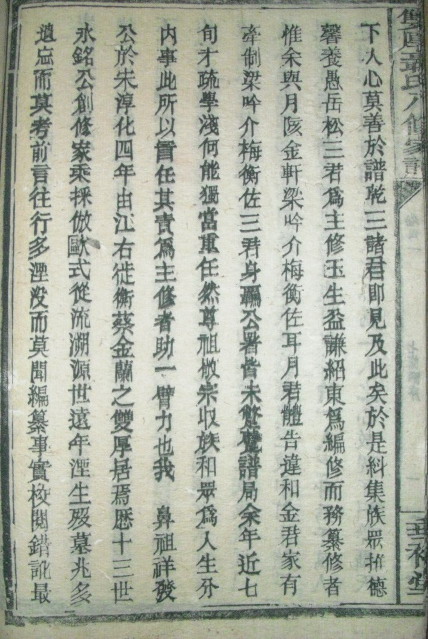 下人心莫善於譜乾三諸君即見及此矣於是糾集族眾推德
馨養愚岳松三君為主修玉生益謙紹東為編修而務纂修者
惟余與月陔金軒梁吟介梅衡佐耳月君體告違和金君家有
牽制梁吟介梅衡佐三君身羈公署皆未蒞譜局余年近七
旬才疏學淺何能獨當重任然尊祖敬宗收族和眾為人生分
內事此所以膺任其責為主修者助一臂力也我 鼻祖祥發
公於宋淳化四年由江右徙衡蔡金蘭之雙厚居焉歷十三世
永銘公創修家乘採倣歐式從流溯源世遠年湮生歿墓兆多
遺忘而莫考前言往行多湮沒而莫聞編纂事實校閱錯訛最
氏八修家譜
堂